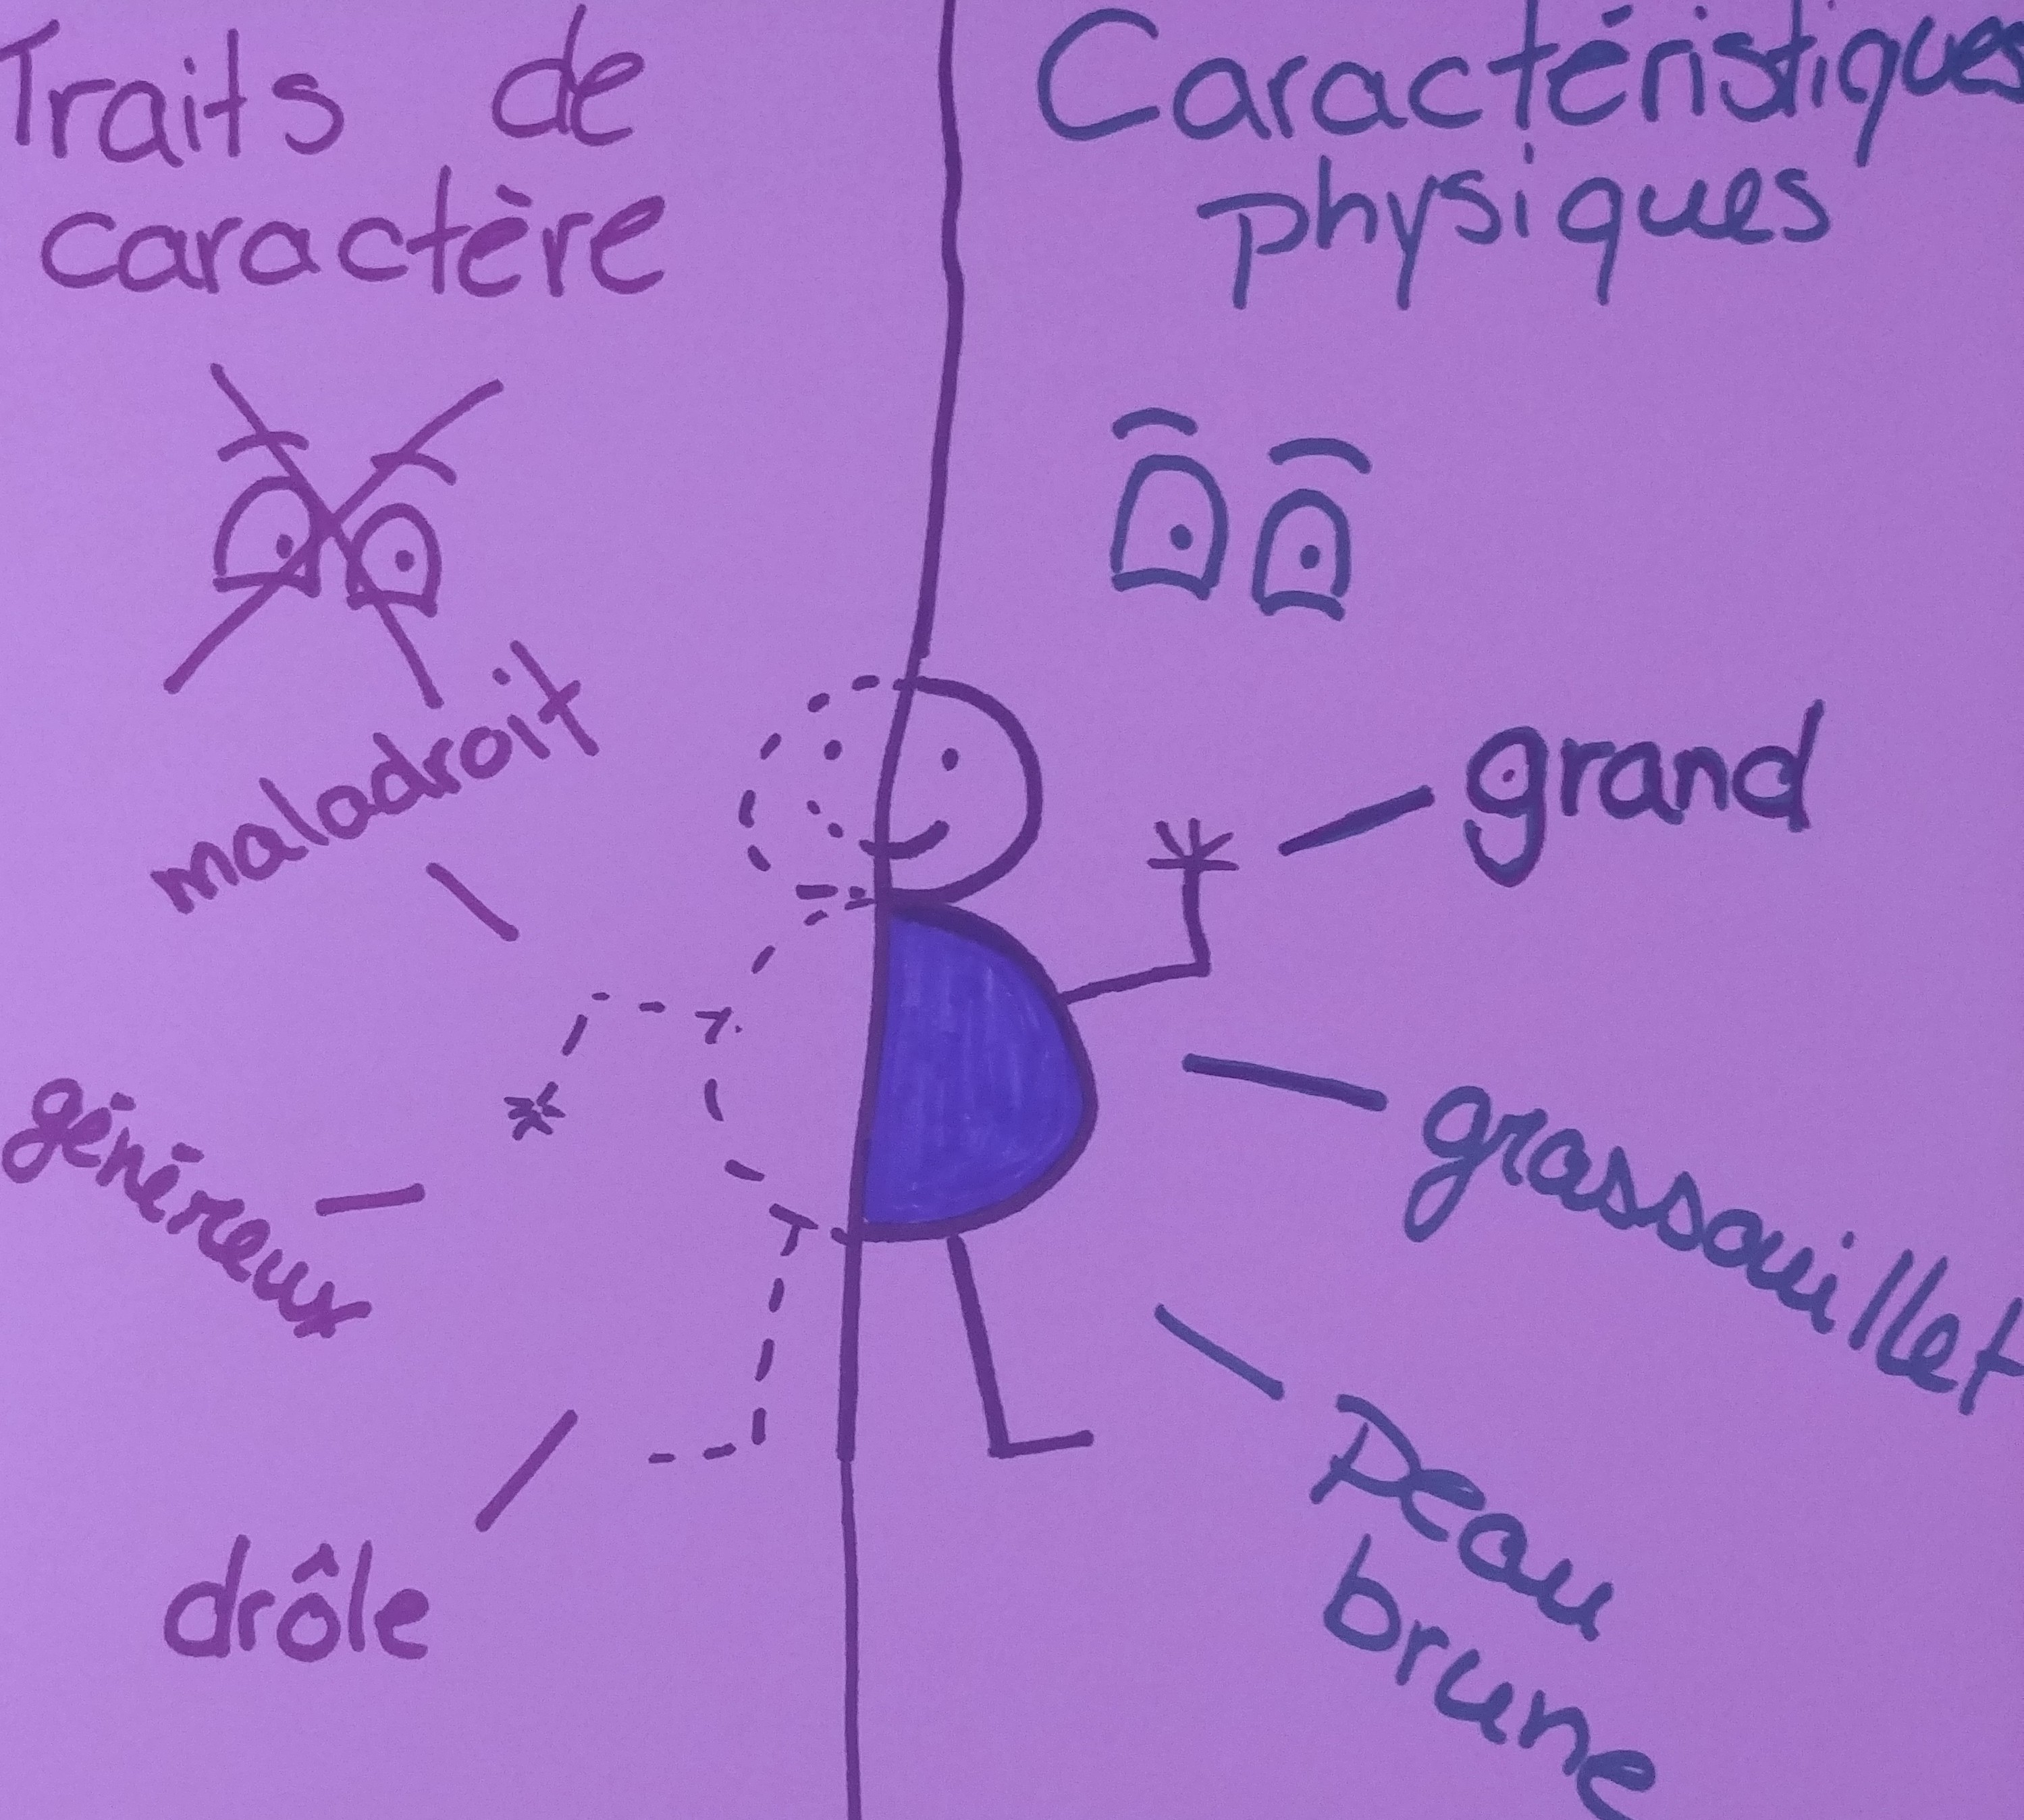 Traits de
caractère
maladroit
généreux
drôle
Caractéristiques
physiques
grand
grassouillet
Peau
brune